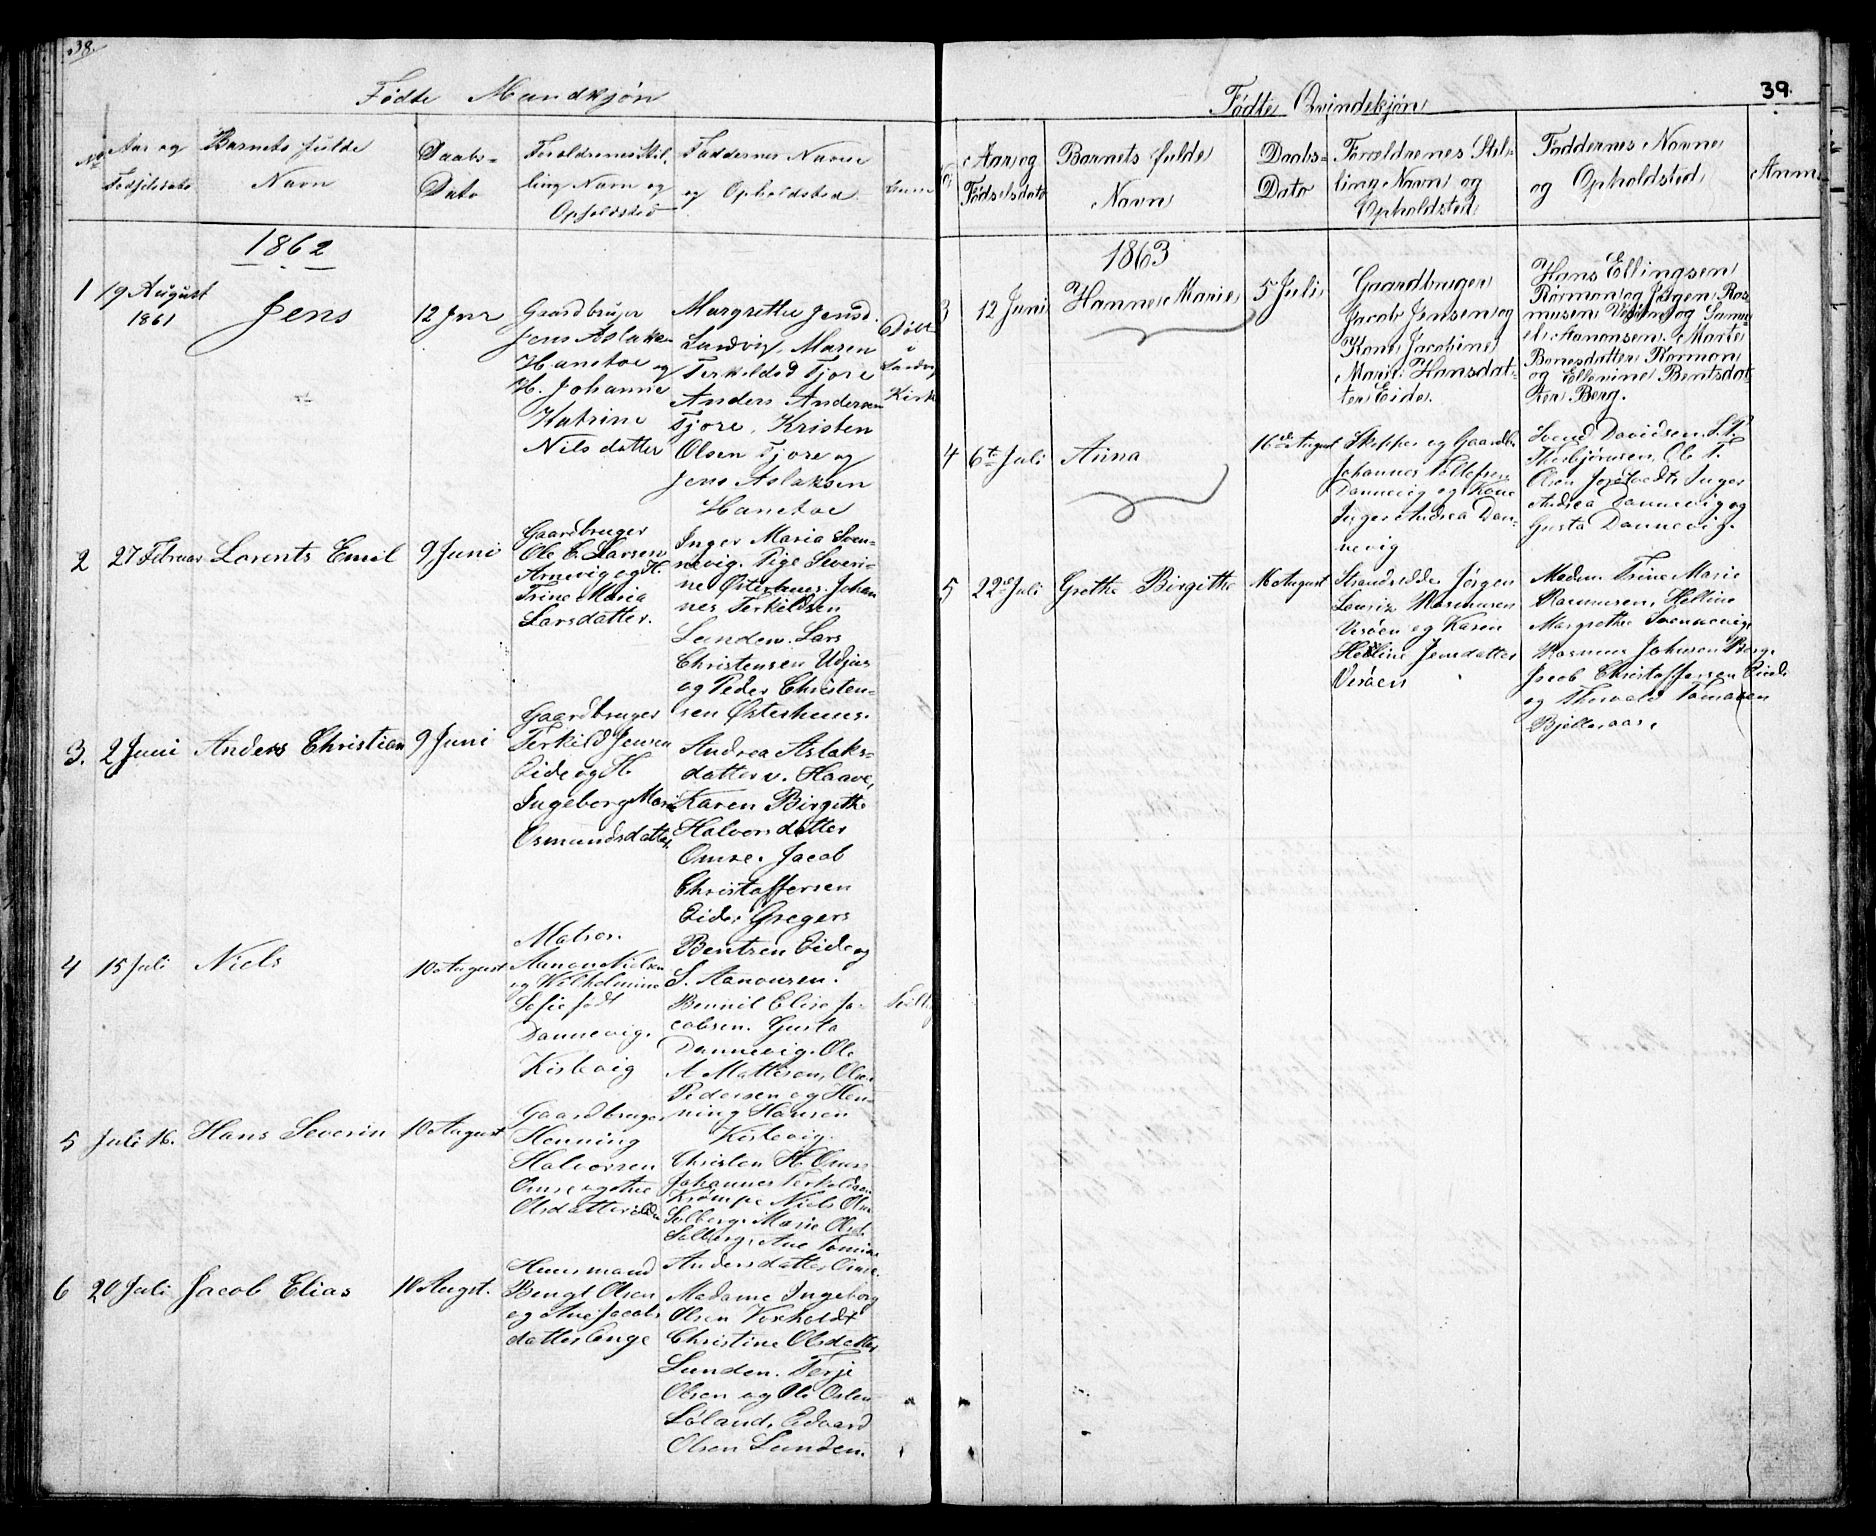 38.
Fødte Mandkjøn
No
Aar og
Fødselsdato
Barnets fulde
Navn
Daabs-
Dato
Forældrenes Stil-
ling Navn og
Opholdsted
Faddernes Navne
og Opholdsted
1862
1
19 August
1861
Jens
12 Janr
Gaardbruger
Jens Aslaksen
Hanetoe og
H. Johanne
Katrine
Nilsdatter
Margrethe Jensd.
Landvig, Maren
Terkildsd Fjore
Anders Andersen
Fjore, Kristen
Olsen Fjore og
Jens Aslaksen
Hanetoe
Døbt
i
Landvig
Kirk
2
27 Februar
Lorents Emil
9 Juni
Gaardbruger
Ole E. Larsen
Arnevig og H.
Trine Maria
Larsdatter.
Inger Maria Sven-
nevig. Pige Severi-
ne Østerhuus. Johan
nes Terkildsen
Lunden. Lars
Christensen Udjus
og Peder Christen-
sen Østerhuus.
3.
2 Juni
Anders Christian
9 Juni
Gaardbruger
Terkild Jensen
Eide og H.
Ingeborg Marie
Osmundsdatter
Andrea Aslaks-
datter v. Haave,
Karen Birgithe
Halvorsdatter
Omre. Jacob
Christoffersen
Eide, Gregers
Bentzen Eide og
S. Aanonsen.
4
15 Juli
Niels
10 August
Matros
Aanon Nielsen
og Wilhelmine
Sofie født
Dannevig.
Kirkevig
Bennit Elise Ja-
cobsen. Gusta
Dannevig. Ole
A Mattisen, Olai
Pedersen og Hen-
ning Hansen
Kirkevig.
5
Juli 16.
Hans Severin
10 August
Gaardbruger
Henning
Halvorsen
Omre og Ane
Olsdatter
Christen H. Omre
Johannes Terkildsen
Krømpe Niels Olsen
Solberg. Marie Olsd.
Solberg, Ane Tomine
Andersdatter Omre.
6
20 Juli
Jacob Elias
10 Augst.
Huusmand
Bengt Olsen
og Ane Jacobs
datter Enge
Madame Ingeborg
Olsen Vorholdt
Christine Olsdatter
Lunden. Terje
Olsen og Ole Oslen
Løland, Edvard
Olsen Lunden.
39.
Fødte Qvindekjøn
No
Aar og
Fødselsdato
Barnets fulde
Navn
Daabs-
Dato
Forældrenes Stil-
ling Navn og
Opholdsted
Faddernes Navne
og Opholdsted
Anm
1863
3
12 Juni
Hanne Marie
5 Juli
Gaardbruger
Jacob Jensen og
Kone Jacobine
Marie Hansdat-
ter Eide.
Hans Ellingsen
Rørmon og Jørgen Ras
musen Vesøen og Samu-
el Aanonsen. Marte
Bønesdatter Rørmon
og Ellevine Bentsdat
ter Berg.
4
6te Juli
Anna
16de August
Skipper og Gaardbr.
Johannes Tellefsen
Dannevig og Kone
Inger Andrea Dan-
nevig
Svend Davidsen, S. T.
Thorbjørnsen, Ole T.
Olsen Inger
Andrea Dannevig og
Gusta Dannevig.
5
22de Juli
Grethe Birgitte
16 August
Strandsidder Jørgen
Lauriz Rasmusen
Vesøen og Karen
Helline Jensdatter
Vesøen
Madm. Trine Marie
Rasmusen, Helline
Margrethe Svennevig,
Rasmus Johnsen Berg.
Jacob Christoffersen Eide
og Thorvald Tomasen
Bjelleraas.